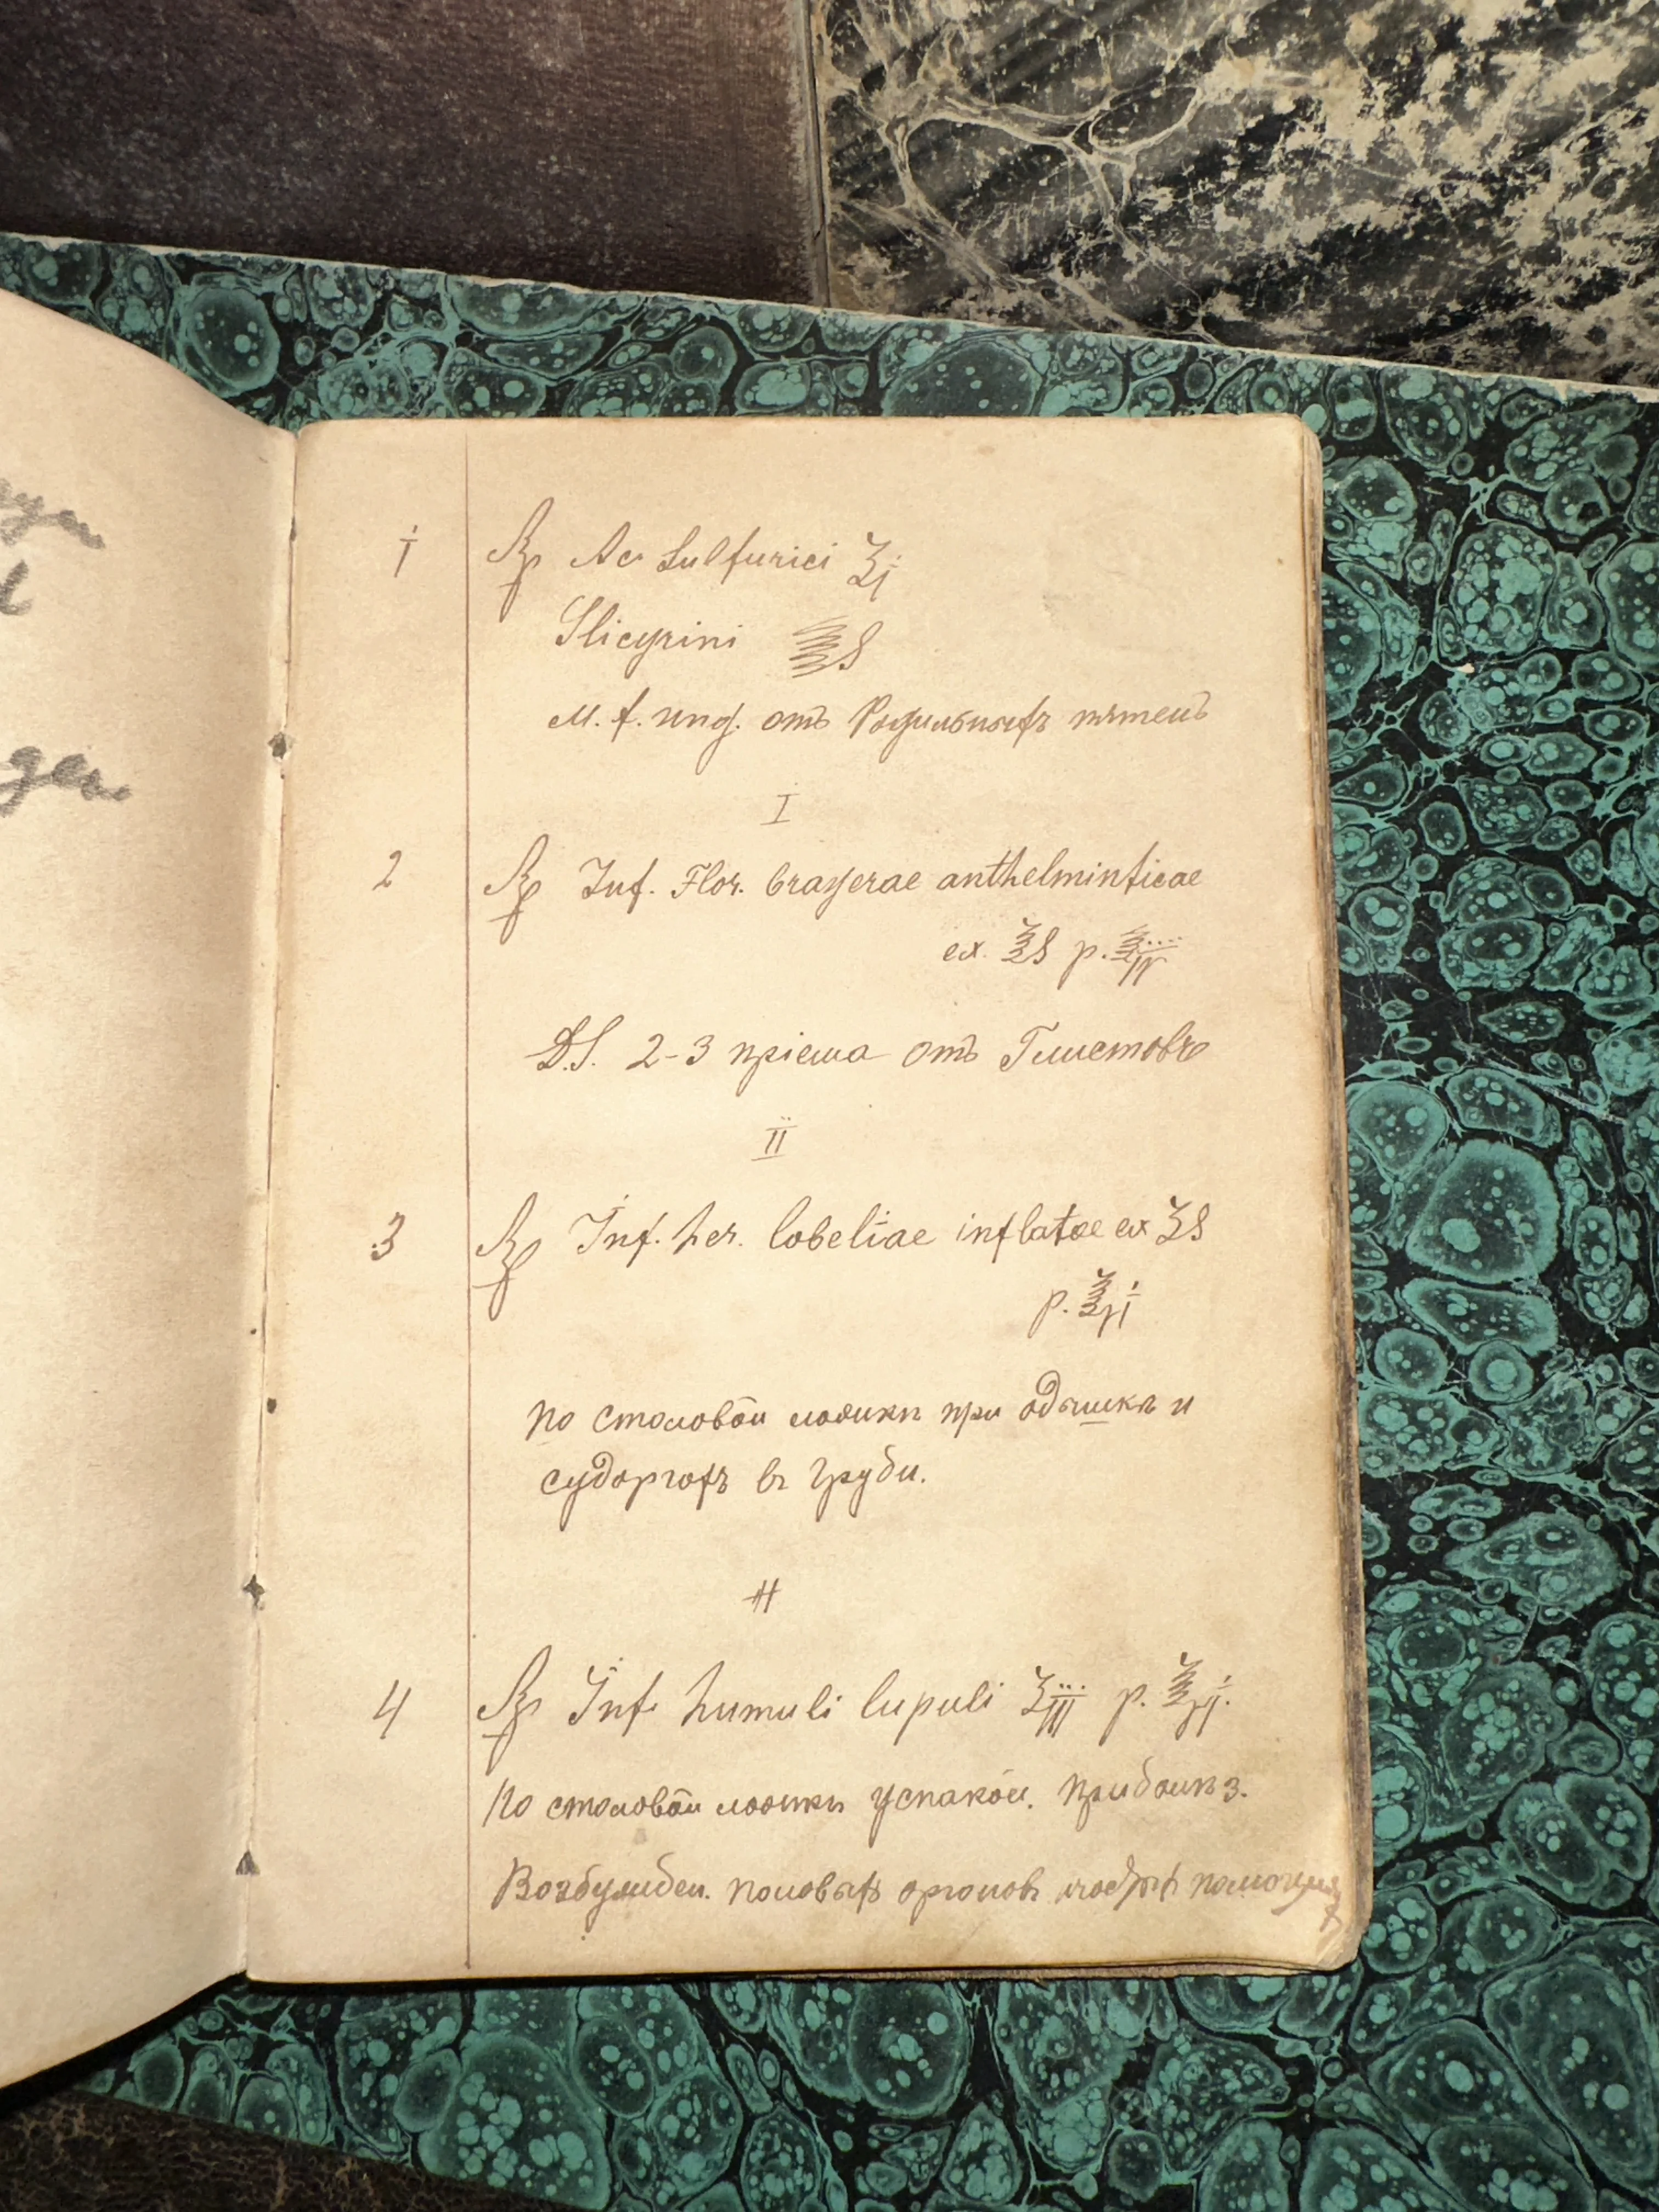 1 Rp Ac. Sulfurici ʒj
Slicyrini ℥S
M. f. ung. отъ Родильныхъ пятенъ
I
2 Rp Inf. Flor. brayerae anthelminticae
ex. ℥S p. ℥IV
D.S. 2-3 пріема отъ Глистовъ
II
3 Rp Inf. her. lobeliae inflatae ex ʒS
p. ℥VI
по столовой ложкѣ при одышкѣ и
судоргахъ въ груди.
4 Rp Inf. humuli lupuli ʒIII p. ℥VI.
По столовой ложкѣ успакои.
Возбужден. половыхъ органовъ